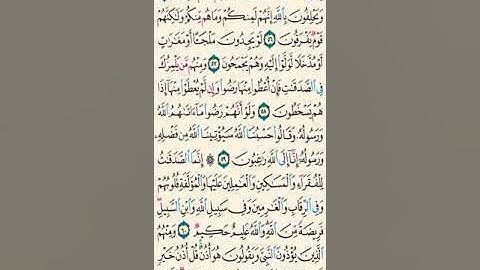 وَيَحْلِفُونَ بِاللَّهِ إِنَّهُمْ لَمِنكُمْ وَمَا هُم مِّنكُمْ وَلَٰكِنَّهُمْ
قَوْمٌ يَفْرَقُونَ ٥٦ لَوْ يَجِدُونَ مَلْجَـًٔا أَوْ مَغَٰرَٰتٍ
أَوْ مُدَّخَلًا لَّوَلَّوْا۟ إِلَيْهِ وَهُمْ يَجْمَحُونَ ٥٧ وَمِنْهُم مَّن يَلْمِزُكَ
فِى ٱلصَّدَقَٰتِ فَإِنْ أُعْطُوا۟ مِنْهَا رَضُوا۟ وَإِن لَّمْ يُعْطَوْا۟ مِنْهَآ إِذَا
هُمْ يَسْخَطُونَ ٥٨ وَلَوْ أَنَّهُمْ رَضُوا۟ مَآ ءَاتَىٰهُمُ ٱللَّهُ
وَرَسُولُهُۥ وَقَالُوا۟ حَسْبُنَا ٱللَّهُ سَيُؤْتِينَا ٱللَّهُ مِن فَضْلِهِۦ
وَرَسُولُهُۥٓ إِنَّآ إِلَى ٱللَّهِ رَٰغِبُونَ ٥٩ ۞ إِنَّمَا ٱلصَّدَقَٰتُ
لِلْفُقَرَآءِ وَٱلْمَسَٰكِينِ وَٱلْعَٰمِلِينَ عَلَيْهَا وَٱلْمُؤَلَّفَةِ قُلُوبُهُمْ
وَفِى ٱلرِّقَابِ وَٱلْغَٰرِمِينَ وَفِى سَبِيلِ ٱللَّهِ وَٱبْنِ ٱلسَّبِيلِ
فَرِيضَةً مِّنَ ٱللَّهِ وَٱللَّهُ عَلِيمٌ حَكِيمٌ ٦٠ وَمِنْهُمُ
ٱلَّذِينَ يُؤْذُونَ ٱلنَّبِىَّ وَيَقُولُونَ هُوَ أُذُنٌ قُلْ أُذُنُ خَيْرٍ